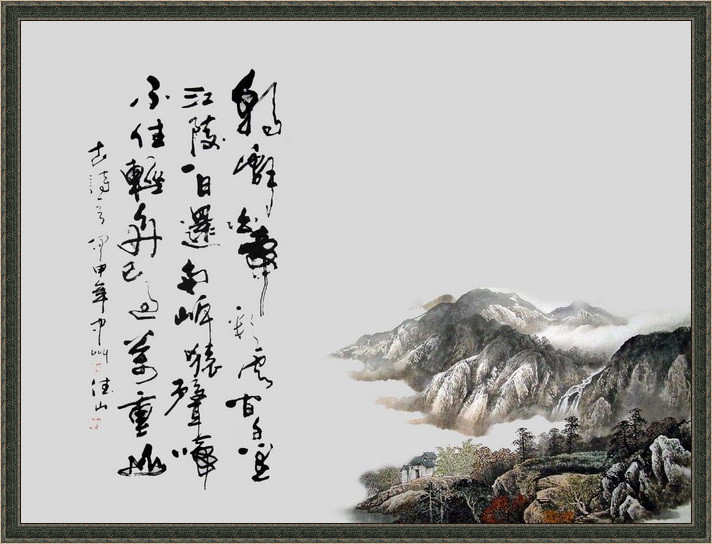 朝辭白帝彩雲間千里
江陵一日還兩岸猿聲啼
不住輕舟已過萬重山
古詩一首 甲年中州山